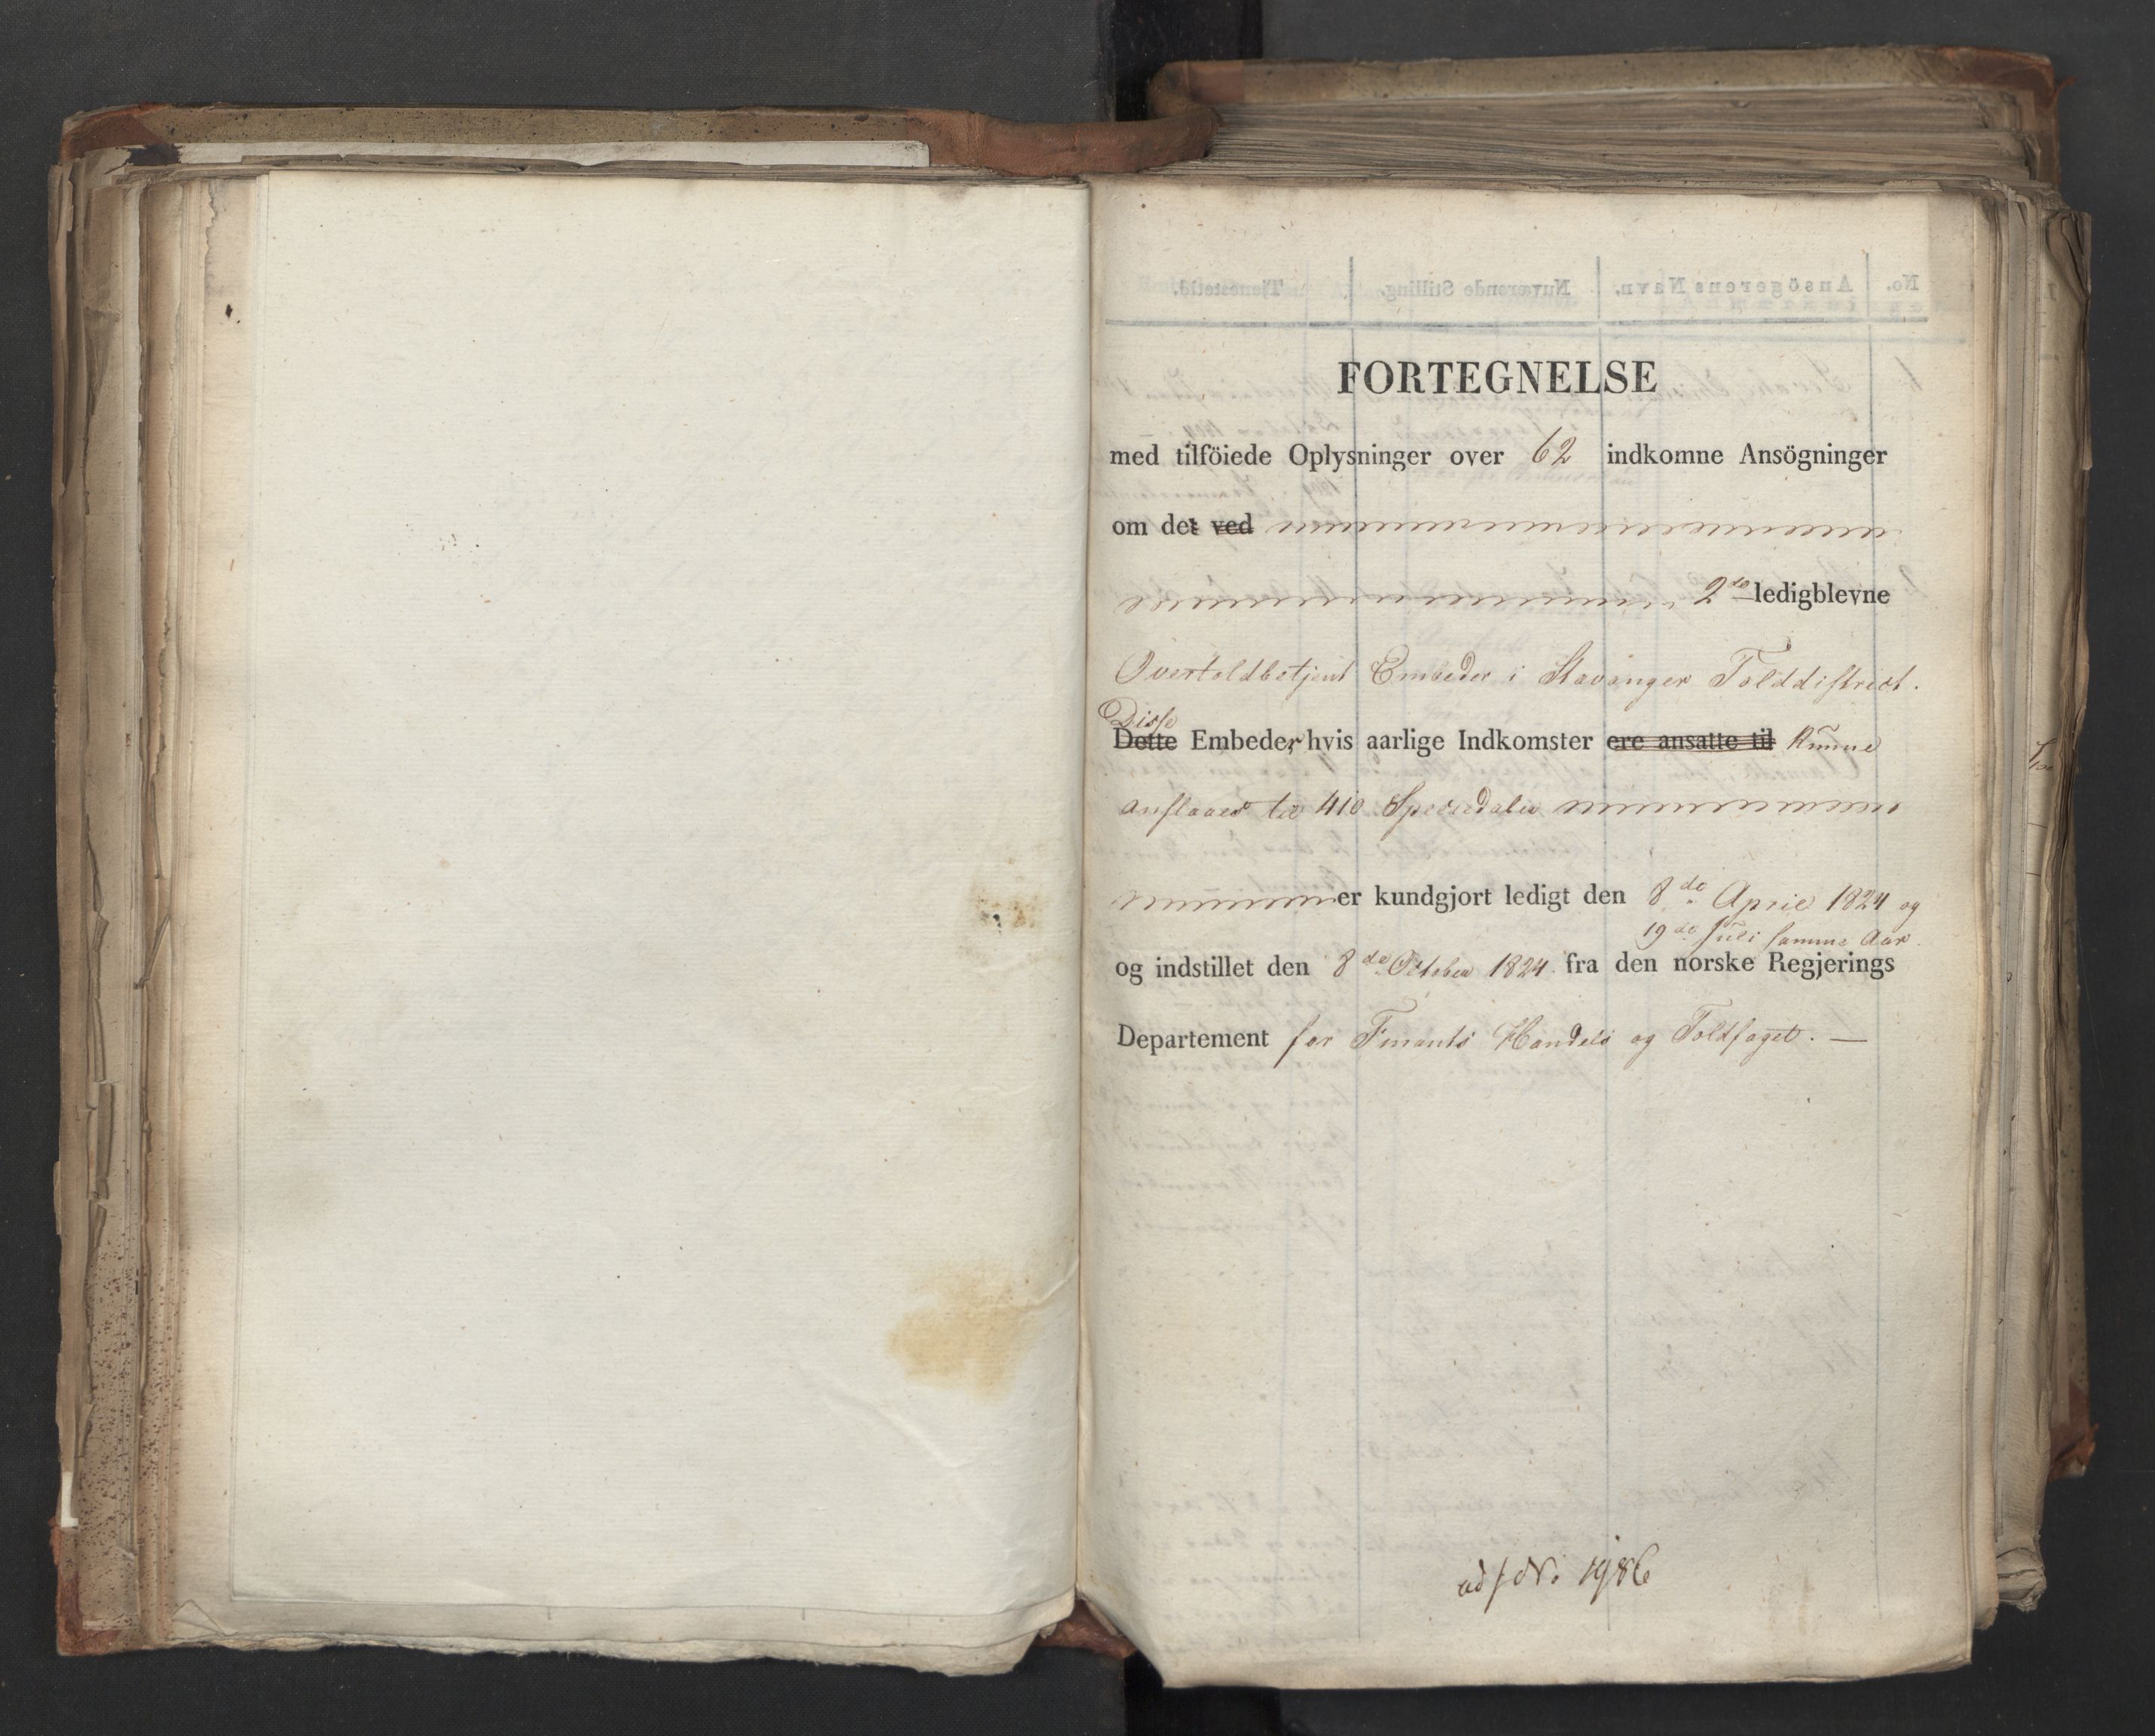 FORTEGNELSE
med tilföiede Oplysninger over 62 indkomne Ansögninger
om det ved
2de ledigblevne
Overtoldbetjent Embeder i Stavanger Tolddistrict.
Disse
Dette Embeder, hvis aarlige Indkomster ere ansatte til kunne
anslaaes til 410 Speciedaler
er kundgjort ledigt den 8de April 1824 og
19de Juli samme Aar.
og indstillet den 8de October 1824 fra den norske Regjerings
Departement for Finants Handels og Toldfaget. —
No. Ansögerens Navn. Nuværende Stilling. Tjenestetid.